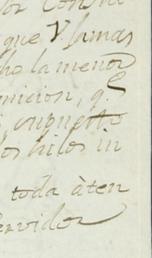 que V. jamas
ho la menor
micion, q.e
supuesto
os hilos in
toda àten
ervidor